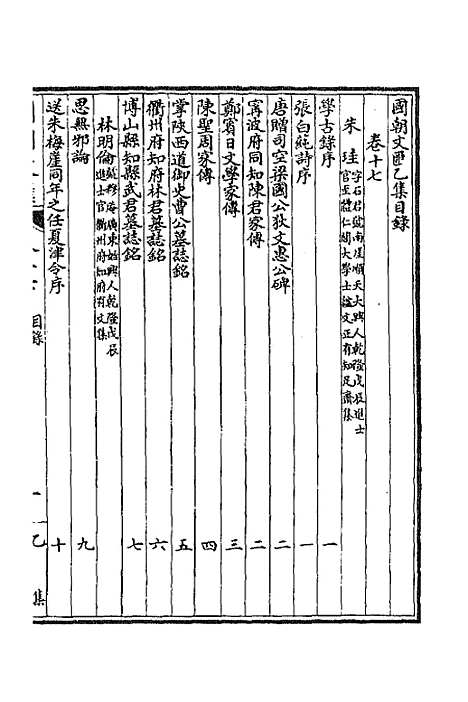 國朝文匯乙集目錄
卷十七
朱珪 字石君號南崖順天大興人乾隆戊辰進士
官至體仁閣大學士諡文正有知足齋集
學古錄序 一
張白蒓詩序 一
唐贈司空梁國公狄文惠公碑 二
寧波府同知陳君家傳 二
鄭賓日文學家傳 三
陳聖周家傳 四
掌陝西道御史曹公墓誌銘 五
衢州府知府林君墓誌銘 六
博山縣知縣武君墓誌銘 七
林明倫 號穆庵廣東始興人乾隆戊辰
進士官衢州府知府有文集
思無邪論 九
送朱梅崖同年之任夏津令序 十
目錄
一
乙集